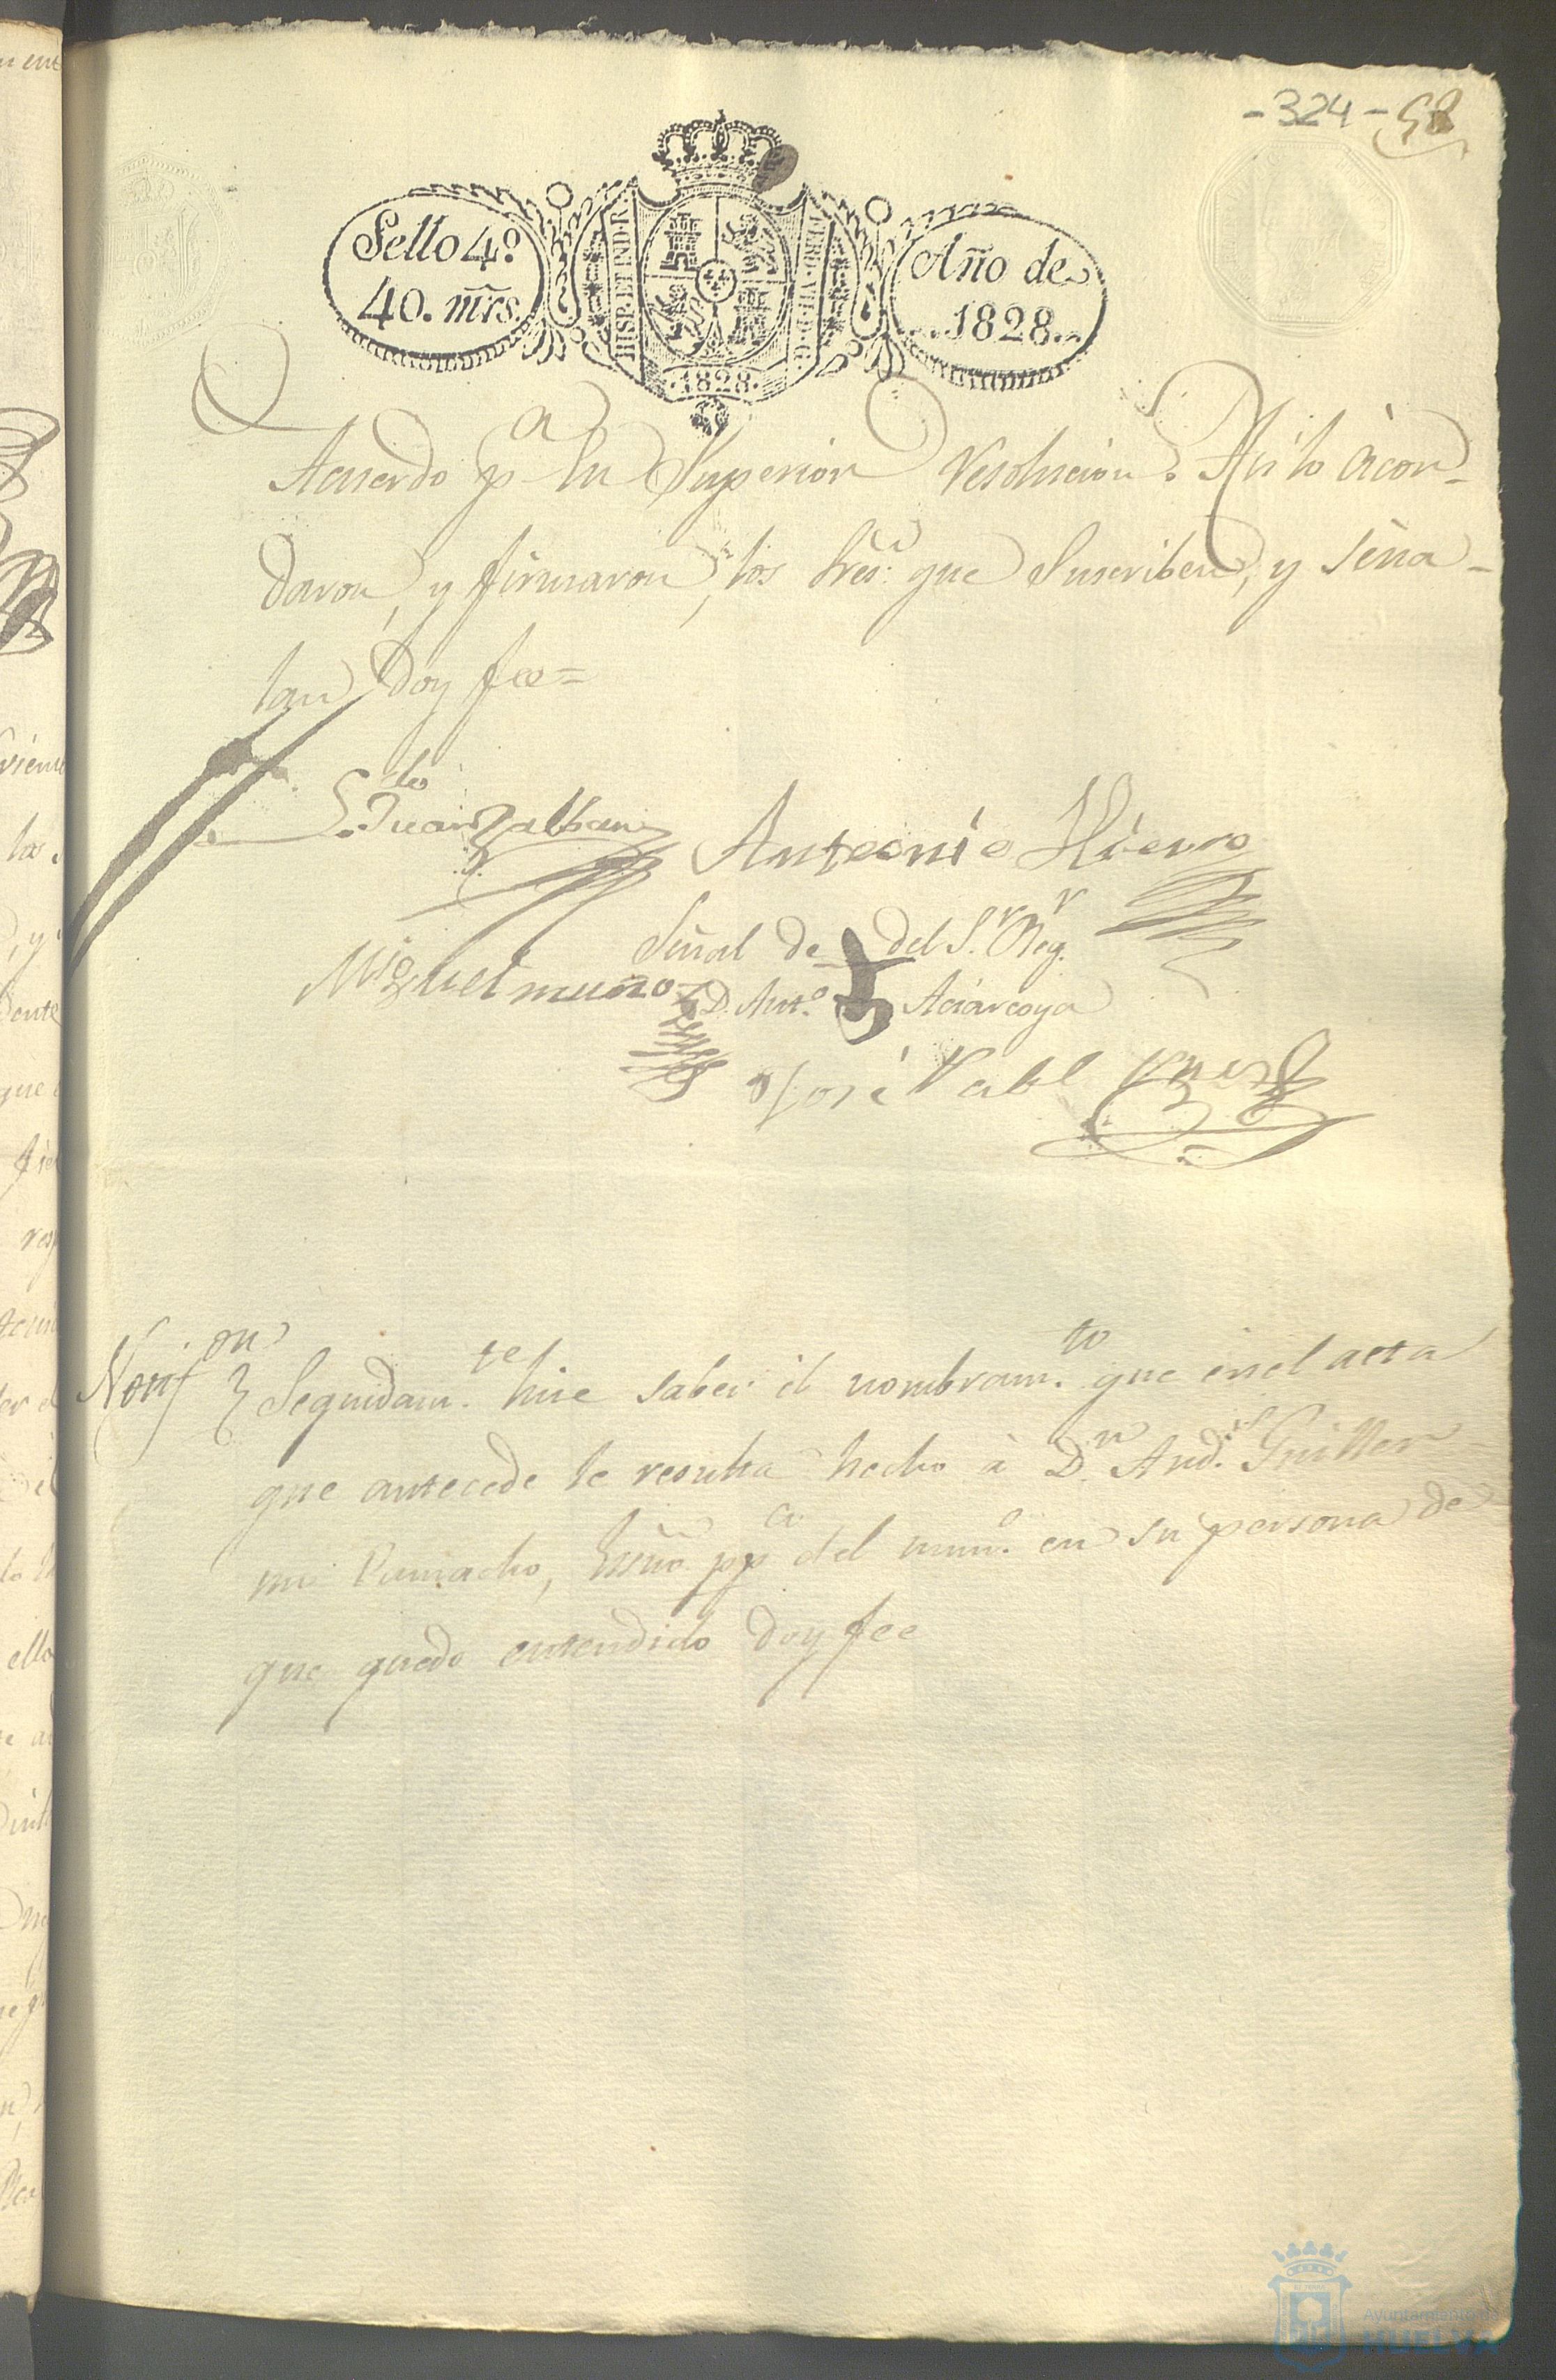 -324- 58
Sello 4º
40. mrs.
HISP. ET IND. R.
FERD. VII. D. G.
Año de
1828.
.1828.
Acuerdo pª su Superior resolucion. Asi lo àcor-
daron, y firmaron, los Sres. que Suscriben, y seña-
lan Doy fee=
Antoonio Hierro
Miguel muñoz
Señal de del Sr. Regr.
D. Antº
José
Notifon Seguidamte. hise saber él nombramto. que en el acta
que antecede le resulta hecho à Dn. Andes. Guiller-
mo Camacho, ppca del mmo. en su persona de
que quedo entendido Doy fee
Ayuntamiento de
HUELVA